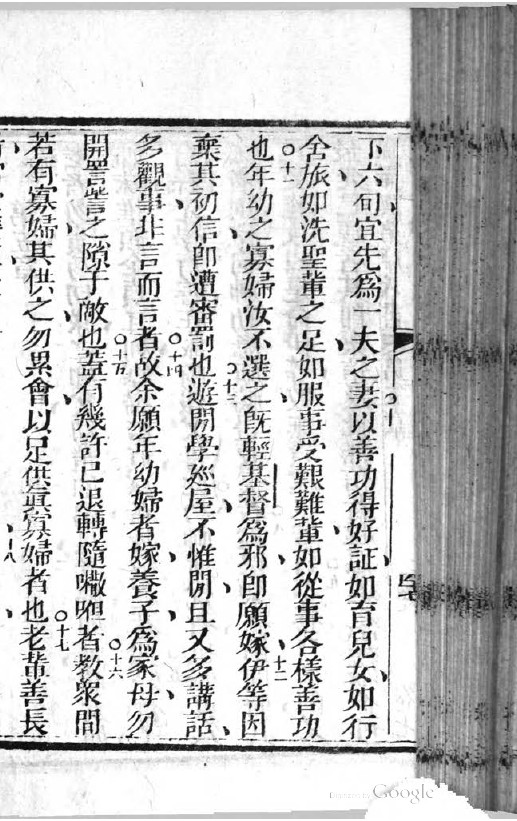 下六旬宜先為一夫之妻○十以善功得好証如育兒女如行
舍旅如洗聖輩之足如服事受艱難輩如從事各樣善功
○十一也年幼之寡婦汝不選之○十二既輕基督為邪即願嫁○十二伊等因
棄其初信即遭審罰也○十三遊閒學巡屋不惟閒且又多講話
多觀事非言而言者○十四故余願年幼婦者嫁養子為家母勿
開詈訾之隙于敵也○十五蓋有幾許已退轉隨㗲呾者○十六教眾間
若有寡婦其供之勿累會以足供眞寡婦者也○十七老輩善長
○十八
Google